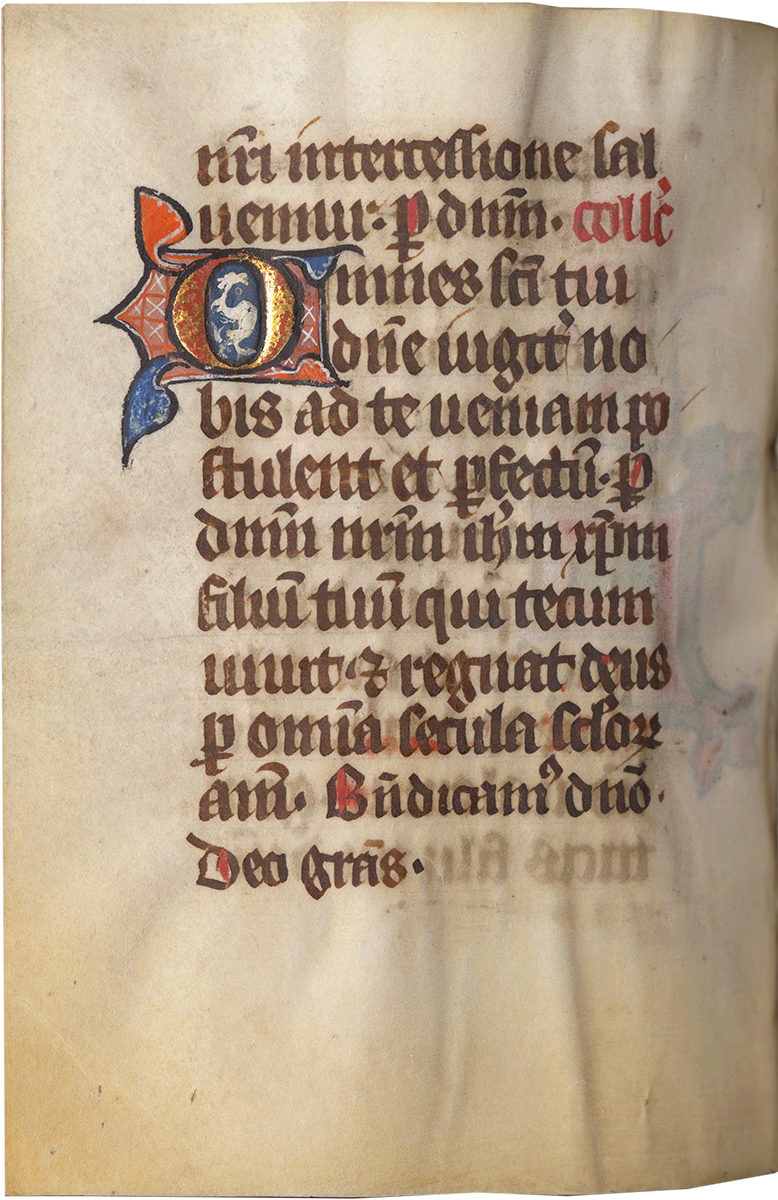 nr̄i intercessione sal
uemur. ꝑ dnm̄. coll'c
Omnes sc̄i tui
dn̄e iugit' no
bis ad te ueniam po
stulent et ꝓfectū. ꝑ
dnm̄ nrm̄ ih'm xp̄m
filiū tuū qui tecum
uiuit. ⁊ regnat deus
ꝑ omīa secula sc'loꝝ
am̄. Bn̄dicam⁹ dn̄o.
Deo grās.